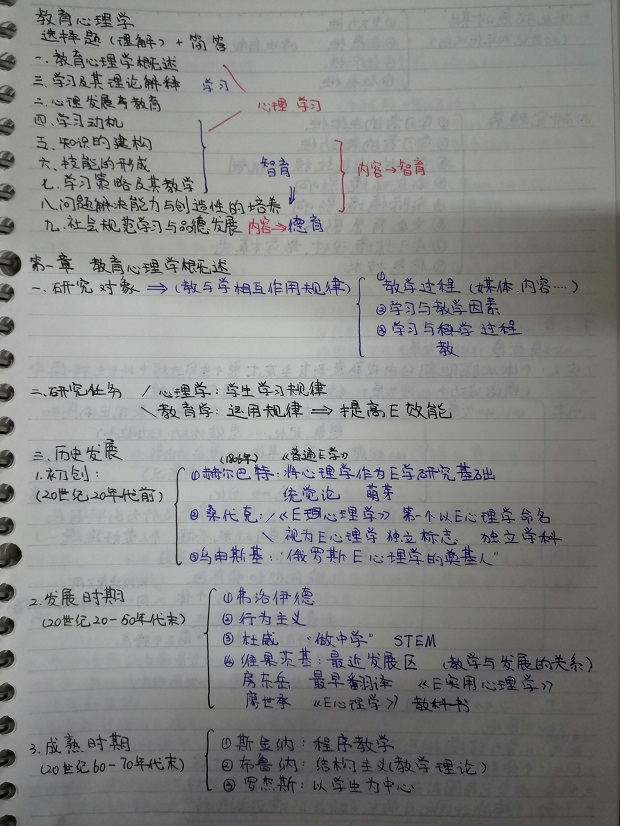 教育心理学
选择题（理解）+ 简答
一.教育心理学概述
三.学习及其理论解释 学习
心理 学习
二.心理发展与教育
四.学习动机
五.知识的建构
六.技能的形成 智育 内容→智育
七.学习策略及其教学
八.问题解决能力与创造性的培养
九.社会规范学习与品德发展 内容→德育
第一章 教育心理学概述
一.研究对象 ⇒（教与学相互作用规律） ①教学过程（媒体.内容····）
②学习与教学因素
③学习与教学过程
教
二.研究任务 / 心理学：学生学习规律
\ 教育学：运用规律 ⇒ 提高E效能
三.历史发展 (1806年) 《普通E学》
1.初创： ①赫尔巴特：将心理学作为E学研究基础
(20世纪20年代前) 统觉论 萌芽
②桑代克：/《E心理学》 第一个以E心理学命名
\ 视为E心理学 独立标志 独立学科
③乌申斯基：“俄罗斯E心理学的奠基人”
2.发展时期 ①弗洛伊德
(20世纪20-50年代末) ②行为主义
③杜威 “做中学” STEM
④维果茨基：最近发展区 （教学与发展的关系）
房东岳 最早翻译 《E实用心理学》
廖世承 《E心理学》 教科书
3.成熟时期 ①斯金纳：程序教学
(20世纪60-70年代末) ②布鲁纳：结构主义(教学理论)
③罗杰斯：以学生为中心